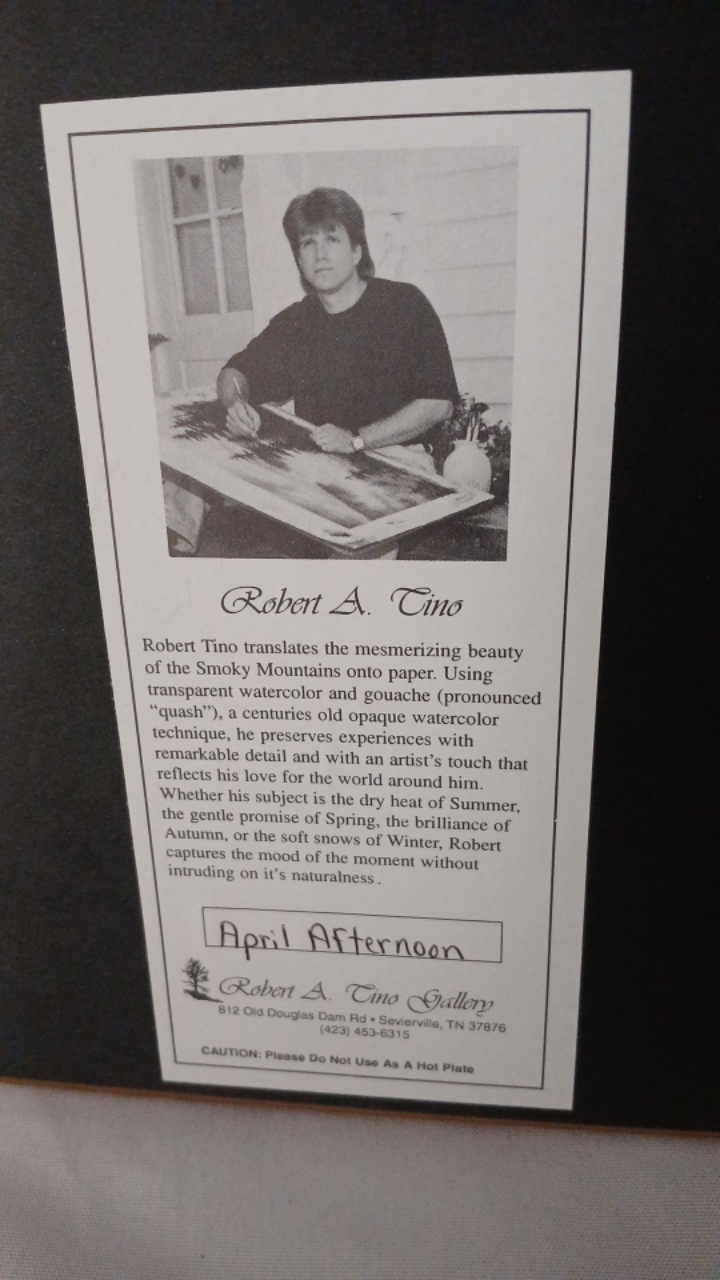 Robert A. Tino
Robert Tino translates the mesmerizing beauty
of the Smoky Mountains onto paper. Using
transparent watercolor and gouache (pronounced
“quash”), a centuries old opaque watercolor
technique, he preserves experiences with
remarkable detail and with an artist's touch that
reflects his love for the world around him.
Whether his subject is the dry heat of Summer,
the gentle promise of Spring, the brilliance of
Autumn, or the soft snows of Winter, Robert
captures the mood of the moment without
intruding on it's naturalness.
April Afternoon
Robert A. Tino Gallery
812 Old Douglas Dam Rd • Sevierville, TN 37876
(423) 453-6315
CAUTION: Please Do Not Use As A Hot Plate